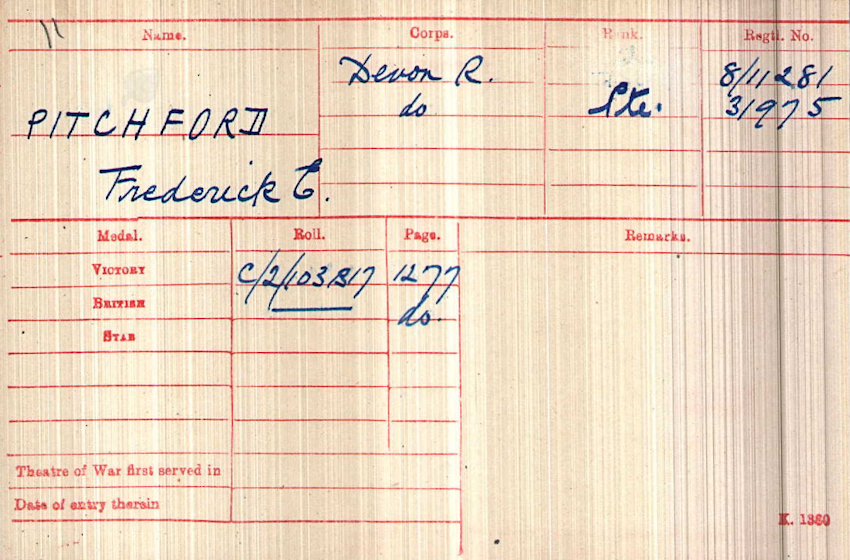 11
Name. Corps. Rank. Regtl. No.
Devon R. 8/11281
PITCHFORD do Pte. 31975
Frederick E.
Medal. Roll. Page. Remarks.
VICTORY C/2/103B17 1277
BRITISH do.
STAR
Theatre of War first served in
Date of entry therein
K. 1380